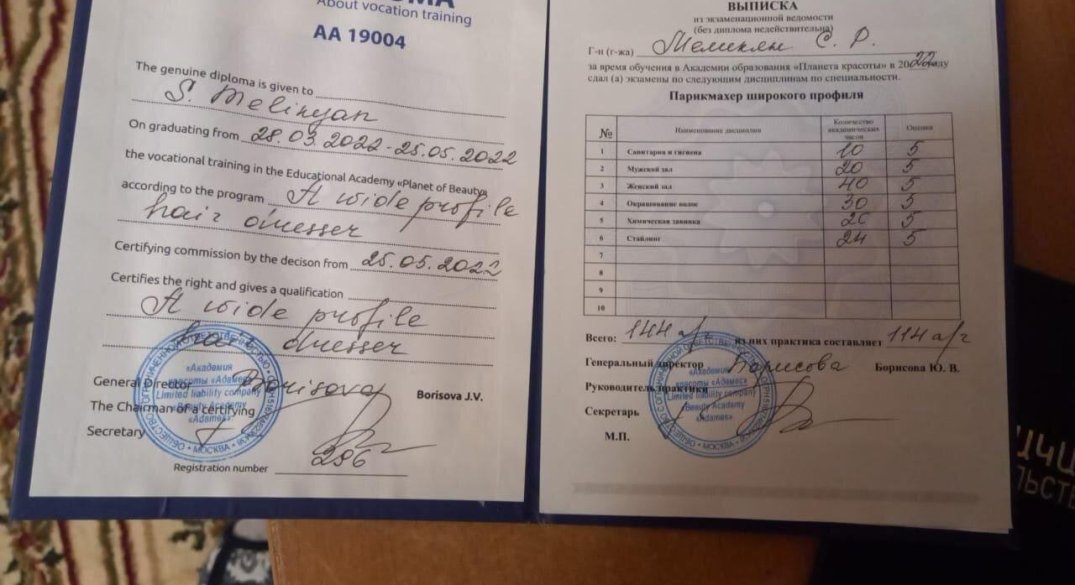 About vocation training
AA 19004
The genuine diploma is given to
S. Melikyan
On graduating from 28.03.2022-25.05.2022
the vocational training in the Educational Academy «Planet of Beauty»
according to the program A wide profile
hair dresser
Certifying commission by the decison from 25.05.2022
Certifies the right and gives a qualification
A wide profile
hair dresser
General Director Borisova Borisova J.V.
The Chairman of a certifying
Secretary
Registration number 296
«Академия
красоты «Адамес»
Limited liability company
Beauty Academy
«Adames»
МОСКВА
ВЫПИСКА
из экзаменационной ведомости
(без диплома недействительна)
Г-н (г-жа) Меликян С. Р.
за время обучения в Академии образования «Планета красоты» в 2022 году
сдал (а) экзамены по следующим дисциплинам по специальности.
Парикмахер широкого профиля
№ Наименование дисциплин Количество академических часов Оценка
1 Санитария и гигиена 10 5
2 Мужской зал 20 5
3 Женский зал 40 5
4 Окрашивание волос 30 5
5 Химическая завивка 20 5
6 Стайлинг 24 5
7
8
9
10
Всего: 144 а/г из них практика составляет 114 а/г
Генеральный директор Борисова Борисова Ю. В.
Руководитель практики
Секретарь
М.П.
«Академия
красоты «Адамес»
Limited liability company
Beauty Academy
«Adames»
МОСКВА